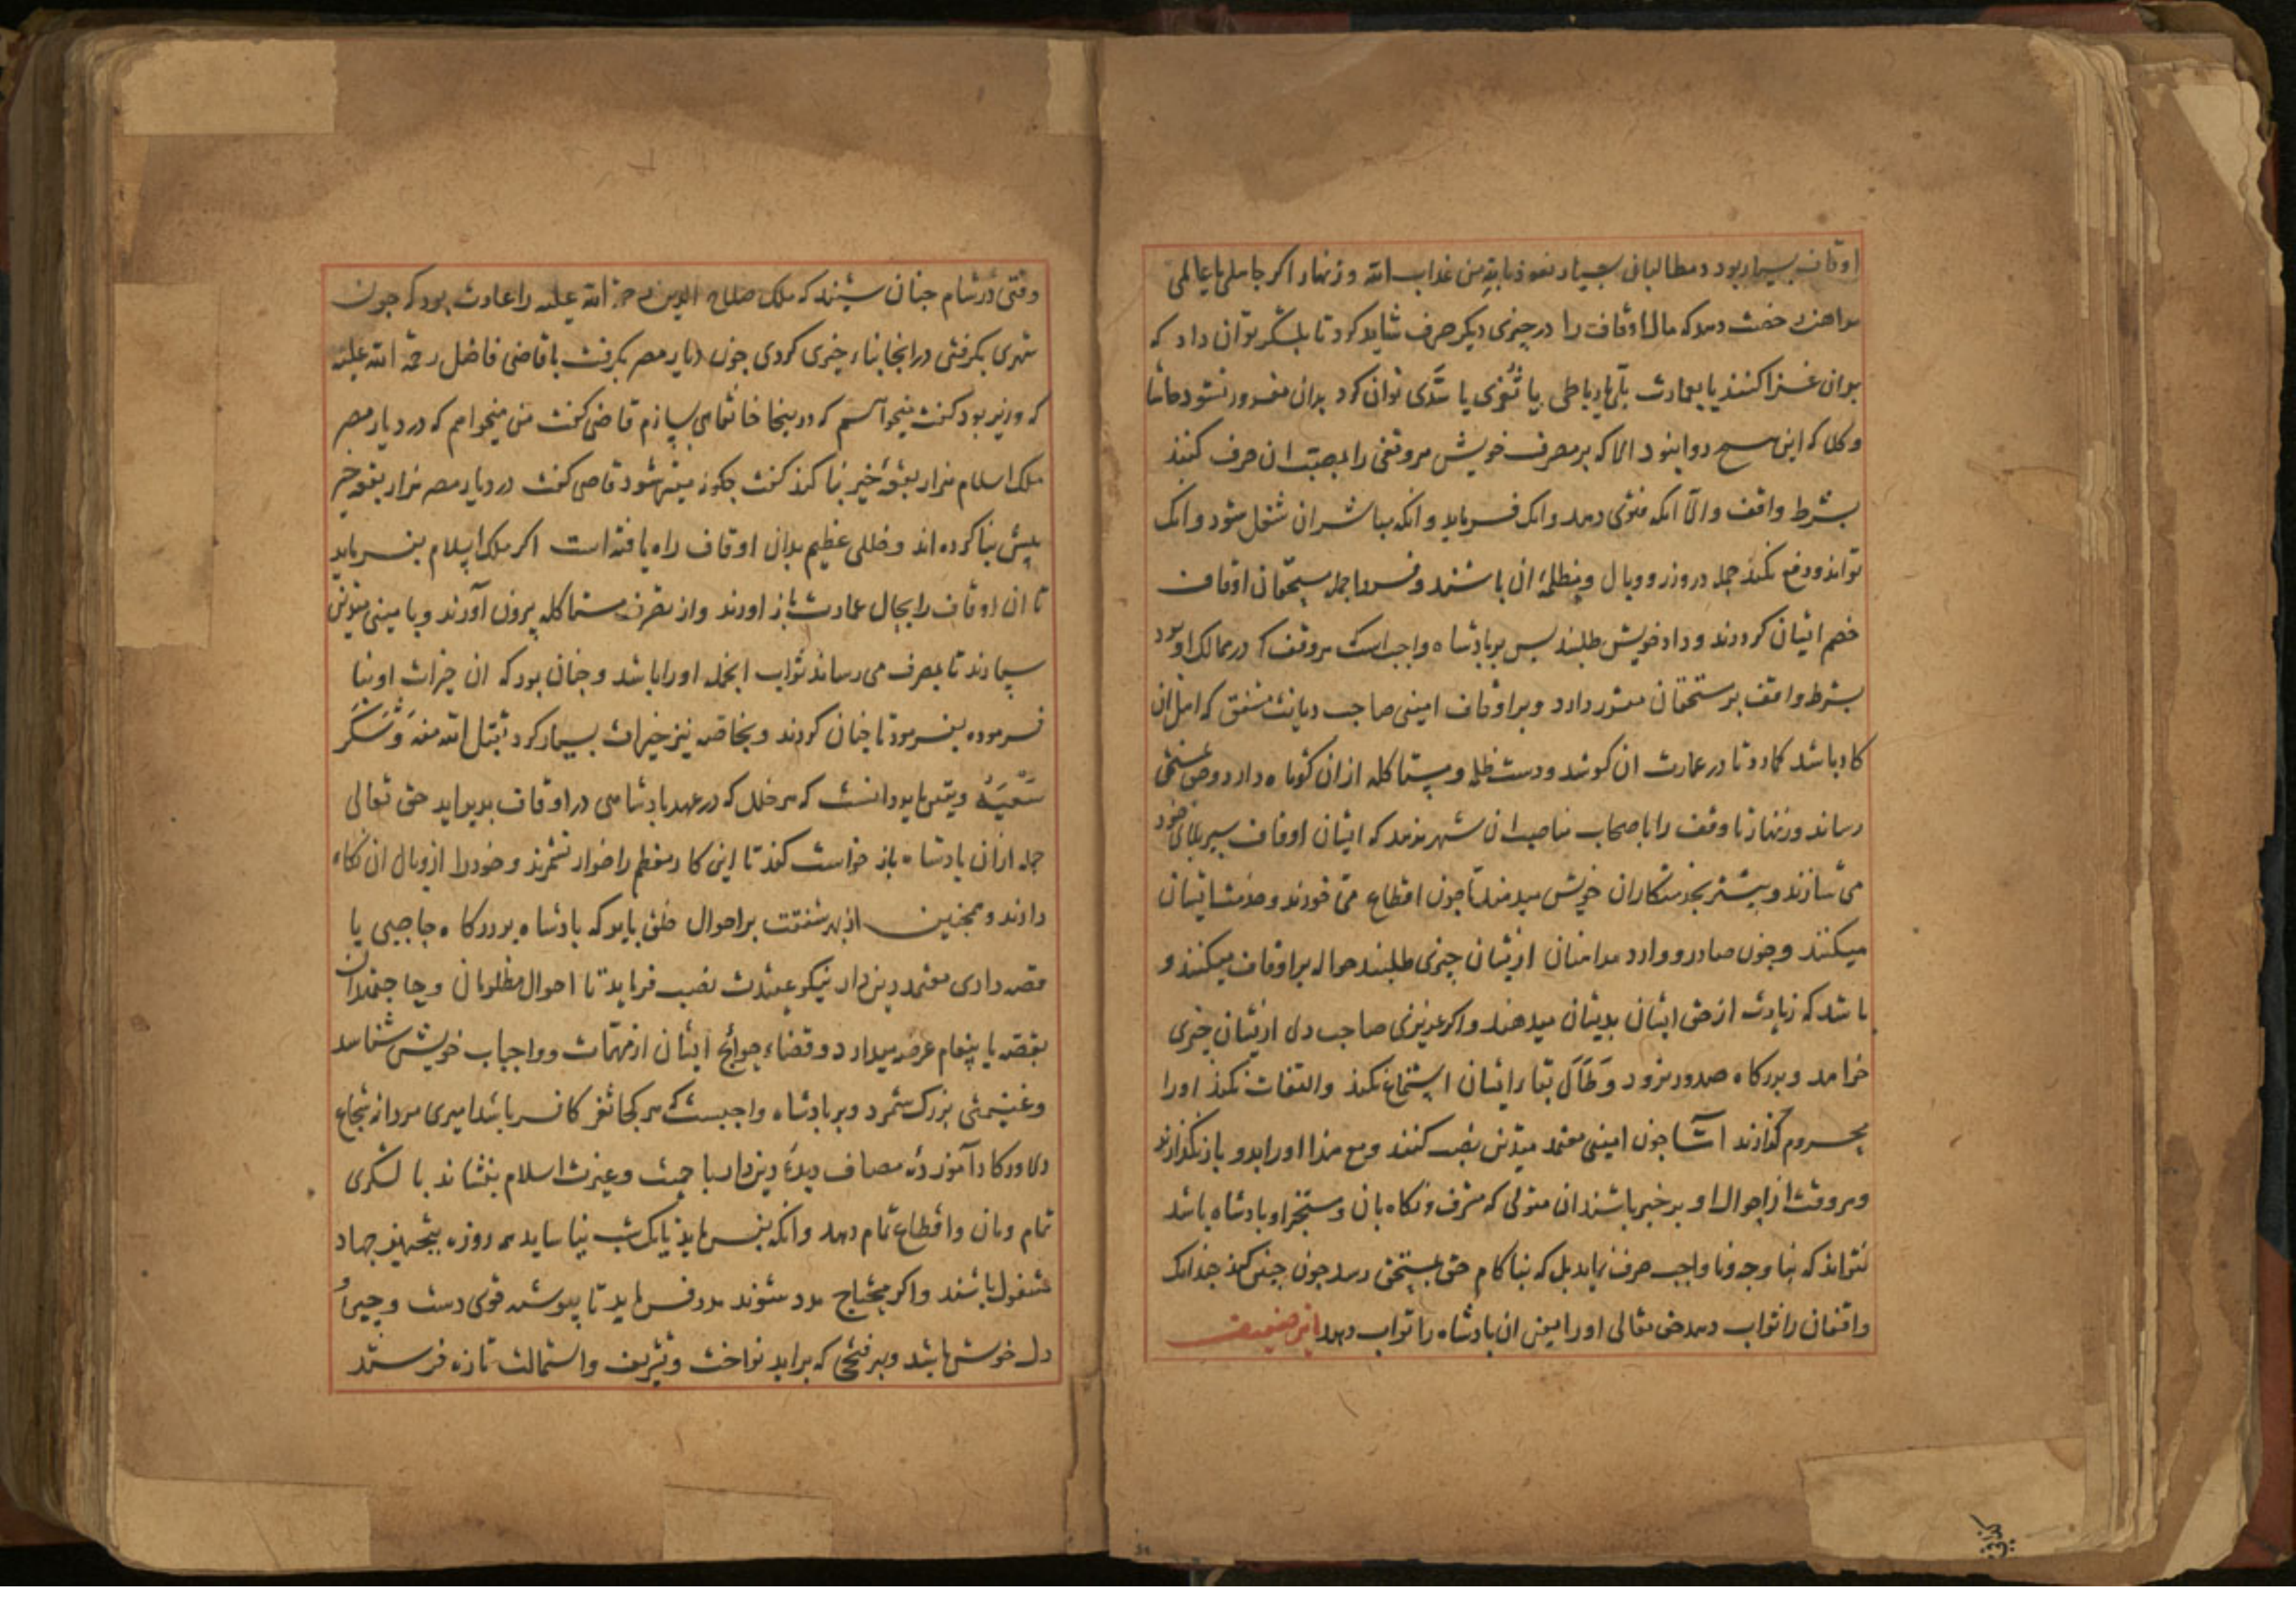 اوقاف بسیار بود و مطالبانی بسیار نعوذ بالله من عذاب الله و زنهار اکر جاهلی یا عالمی
مداهن رخصت دهد که مال اوقاف را در چیزی دیکر صرف شاید کرد تا بلشکر توان داد که
بدان غزا کنند یا بعمارت پلی یا رباطی یا ثغری یا سدی توان کرد بدان مغرور نشود حاشا
و کلا که این هیچ روا نبود الا که بر مصرف خویش هر وقفی را بمصب ان صرف کنند
بشرط واقف والا انکه فتوی دهد و انک فرماید و انکه مباشر ان شغل شود و انک
تواند و دفع نکند جمله در وزر و وبال و مظلمه ان باشند و فردا جمله مستحقان اوقاف
خصم ایشان کردند و داد خویش طلبند بس بر بادشاه واجب است هر وقف که در ممالک او بود
بشرط واقف بر مستحقان مقرر دارد و بر اوقاف امینی صاحب دیانت مشفق که اهل ان
کار باشد کمارد تا در عمارت ان کوشد و دست ظلمه و مستاکله از ان کوتاه دارد و حق بمستحق
رساند و زنهار تا وقف را باصحاب مناصب ان شهر ندهد که ایشان اوقاف سپر بلای خود
می سازند و بیشتر بخدمتکاران خویش میدهند تا چون اقطاع می خورند و خدمت ایشان
میکنند و چون صادر و وارد مداهنان ازیشان چیزی طلبند حواله بر اوقاف میکنند و
باشد که زیادت از حق ایشان بدیشان میدهند و اکر عزیزی صاحب دل ازیشان چیزی
خواهد و بدرکاه صدور نرود و طال بقا ایشان استماع نکند و التفات نکند او را
محروم کذارند اما چون امینی معتمد متدین نصب کنند و مع هذا او را بدو باز نکذارند
و هر وقت از احوال او بر خبر باشند ان متولی که مشرف و نکاه بان و مستخبر او بادشاه باشد
نتواند که بنا وجه و نا واجب صرف نماید بل که بنا کام حق بمستحق رسد چون چنین کند چندانک
واقفان را ثواب دهد حق تعالی او را بعین ان بادشاه را ثواب دهد این ضعیف
وقتی در شام چنان شنید که ملک صلاح الدین رحمة الله علیه را عادت بود که چون
شهری بکرفتی در انجا بناء خیری کردی چون دیار مصر بکرفت با قاضی فاضل رحمة الله علیه
که وزیر بود کفت میخواهم که درینجا خانقاهی بسازم قاضی کفت من میخواهم که در دیار مصر
ملک اسلام هزار بقعه خیر بنا کند کفت چکونه میسر شود قاضی کفت در دیار مصر هزار بقعه خیر
بیش بنا کرده اند و خللی عظیم بدان اوقاف راه یافته است اکر ملک اسلام بفرماید
تا ان اوقاف را بحال عمارت باز اورند و از تصرف مستاکله بیرون آورند و با مینی متدین
سپارند تا بمصرف می رساند ثواب انجمله او را باشد و چنان بود که ان خیرات او بنا
فرموده بفرمود تا چنان کردند و بخاصه نیز خیرات بسیار کرد تقبل الله منه و شکر
سعیه و یقین باید دانست که هر خلل که در عهد بادشاهی در اوقاف بدید اید حق تعالی
جمله از ان بادشاه باز خواست کند تا این کار معظم را خوار نشمرند و خود را از وبال ان نکاه
دارند و همچنین از بهر شفقت بر احوال خلق باید که بادشاه بر درکاه حاجبی یا
قصه داری معتمد دین دار نیکو عقیدت نصب فرماید تا احوال مظلومان و حاجتمندان
بقصه یا پیغام عرضه میدارد و قضاء حوائج ایشان از مهمات و واجبات خویش شناسد
و غنیمتی بزرک شمرد و بر بادشاه واجبست که هر کجا ثغر کافر باشد امیری مردانه شجاع
دلاور کار آموز ده مصاف دیده دین دار با حمیت و عیرت اسلام بنشاند با لشکری
تمام و نان و اقطاع تمام دهد و انکه بفرماید تا یک شب نیا ساید همه روزه بتجهیز جهاد
مشغول باشند و اکر محتاج مدد شوند مدد فرماید تا پیوسته قوی دست و چیره
دل خوش باشد و بهر فتحی که براید نواخت و تشریف و استمالت تازه فرستد